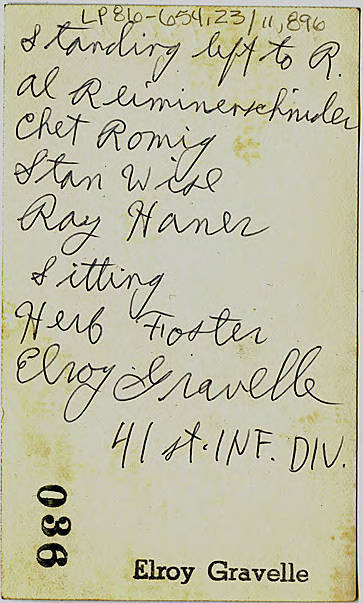 LP86-654,23/11,896
Standing left to R.
Al Reiminerschnider
Chet Romig
Stan Wise
Ray Haner
Sitting
Herb Foster
Elroy Gravelle
41st. INF. DIV.
036
Elroy Gravelle